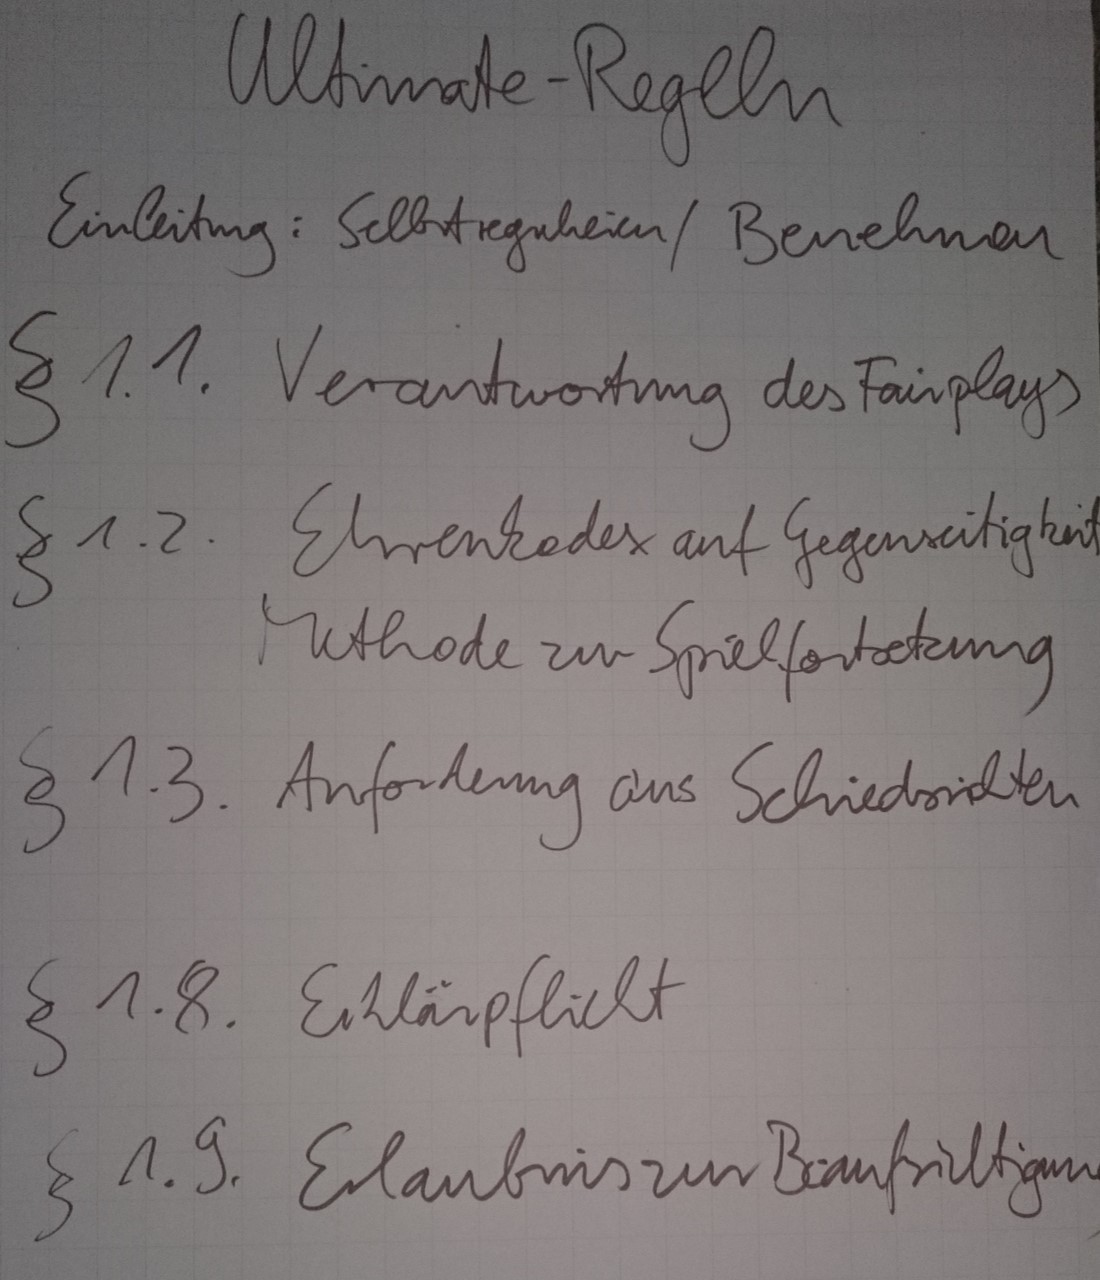 Ultimate-Regeln
Einleitung: Selbstregulieren / Benehmen
§ 1.1. Verantwortung des Fairplays
§ 1.2. Ehrenkodex auf Gegenseitigkeit
Methode zur Spielfortsetzung
§ 1.3. Anforderung ans Schiedsrichten
§ 1.8. Erklärpflicht
§ 1.9. Erlaubnis zur Beaufsichtigung